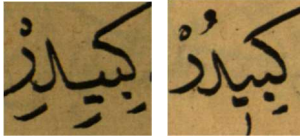 كِبِيدُرْ
كِبِيدِرْ